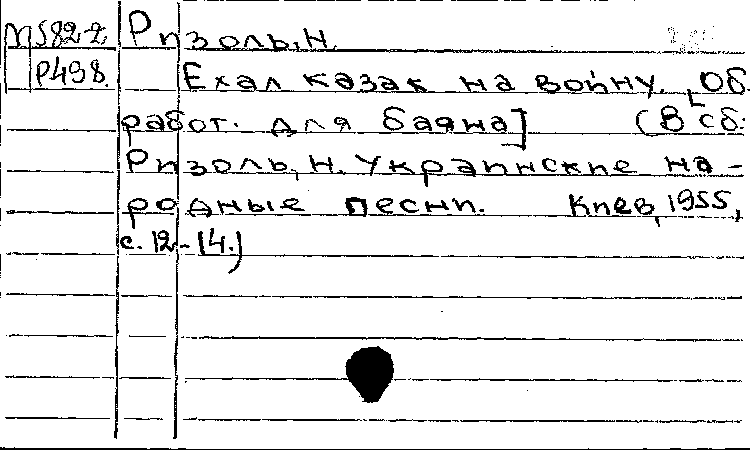 М582-2 Ризоль, Н.
Р498. Ехал казак на войну. [Об-
работ. для баяна] (В сб.:
Ризоль, Н. Украинские на-
родные песни. Киев, 1955,
с. 12-14.)